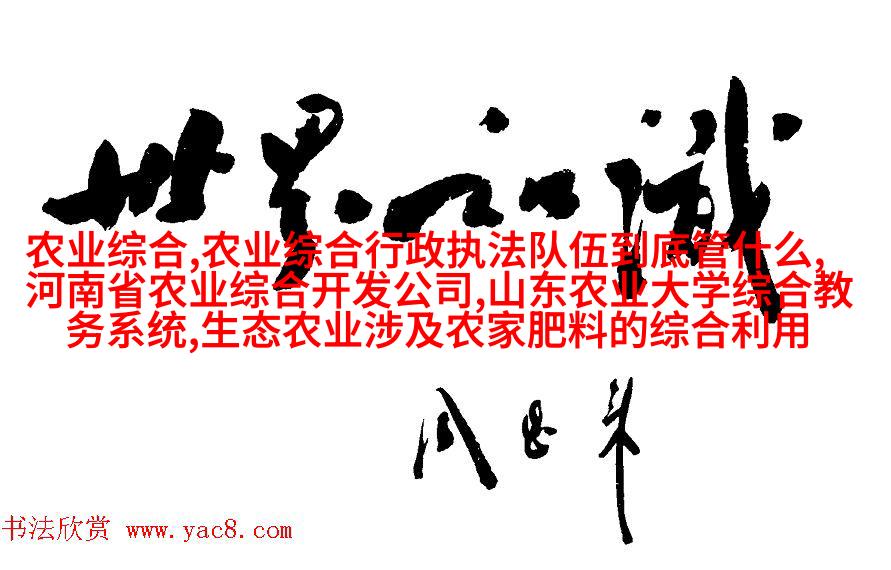 世界知識
农业综合,农业综合行政执法队伍到底管什么,
河南省农业综合开发公司,山东农业大学综合教
务系统,生态农业涉及农家肥料的综合利用
周恩来
书法欣赏 www.yac8.com